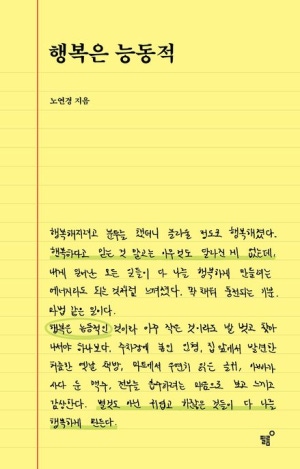 행복은 능동적
노연경 지음
행복해지려고 분투를 했더니 놀라울 정도로 행복해졌다.
행복하다고 믿는 것 말고는 아무것도 달라진 게 없는데,
내게 일어난 모든 일들이 다 나를 행복하게 만들려는
에너지라도 되는 것처럼 느껴졌다. 막 채워 충전되는 기분,
마법 같은 일이다.
행복은 능동적인 것이라 아주 작은 것이라도 발 벗고 찾아
나서야 하나보다. 수화기에 붙인 인형, 집 앞에서 발견한
허름한 옛날 책방, 마트에서 우연히 읽은 글귀, 아빠가
사다 둔 맥주, 전부를 흡수하려는 마음으로 보고 느끼고
감상한다. 별것도 아닌 귀엽고 하찮은 것들이 다 나를
행복하게 만든다.
필름